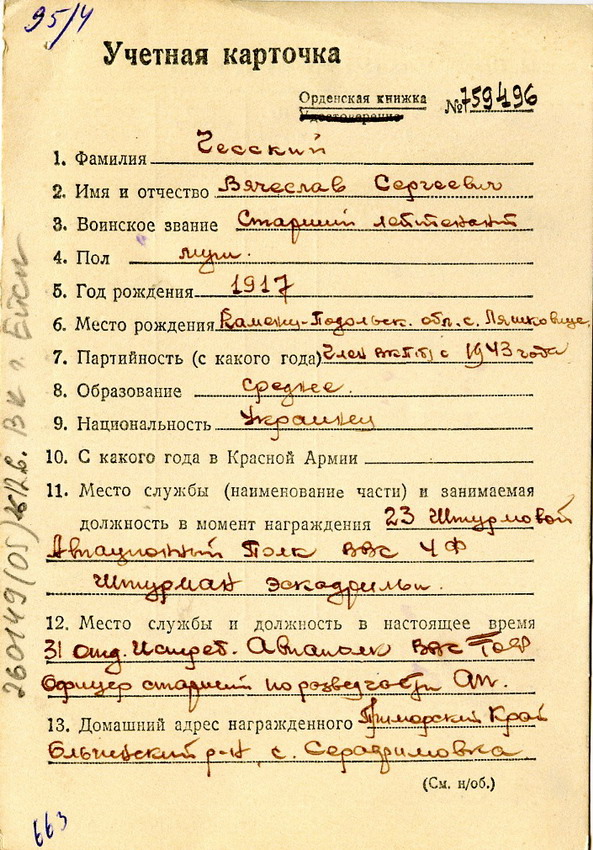 95/4
Учетная карточка
Орденская книжка
Удостоверение
№ 759496
1. Фамилия Чесский
2. Имя и отчество Вячеслав Сергеевич
3. Воинское звание Старший лейтенант
4. Пол муж.
5. Год рождения 1917
6. Место рождения Каменц-Подольск. обл. с. Ляшковице
7. Партийность (с какого года) Член ВКП(б) с 1943 года
8. Образование среднее.
9. Национальность Украинец
10. С какого года в Красной Армии
11. Место службы (наименование части) и занимаемая
должность в момент награждения 23 Штурмовой
Авиационный Полк ВВС ЧФ
Штурман эскадрильи.
12. Место службы и должность в настоящее время
31 отд. Истреб. Авиаполк ВВС ТОФ
Офицер старший по разведчасти АП.
13. Домашний адрес награжденного Приморский Край
Ольгинский р-н, с. Серафимовка
(См. н/об.)
663
260149(05) 26/12в. ВК г. Ейск